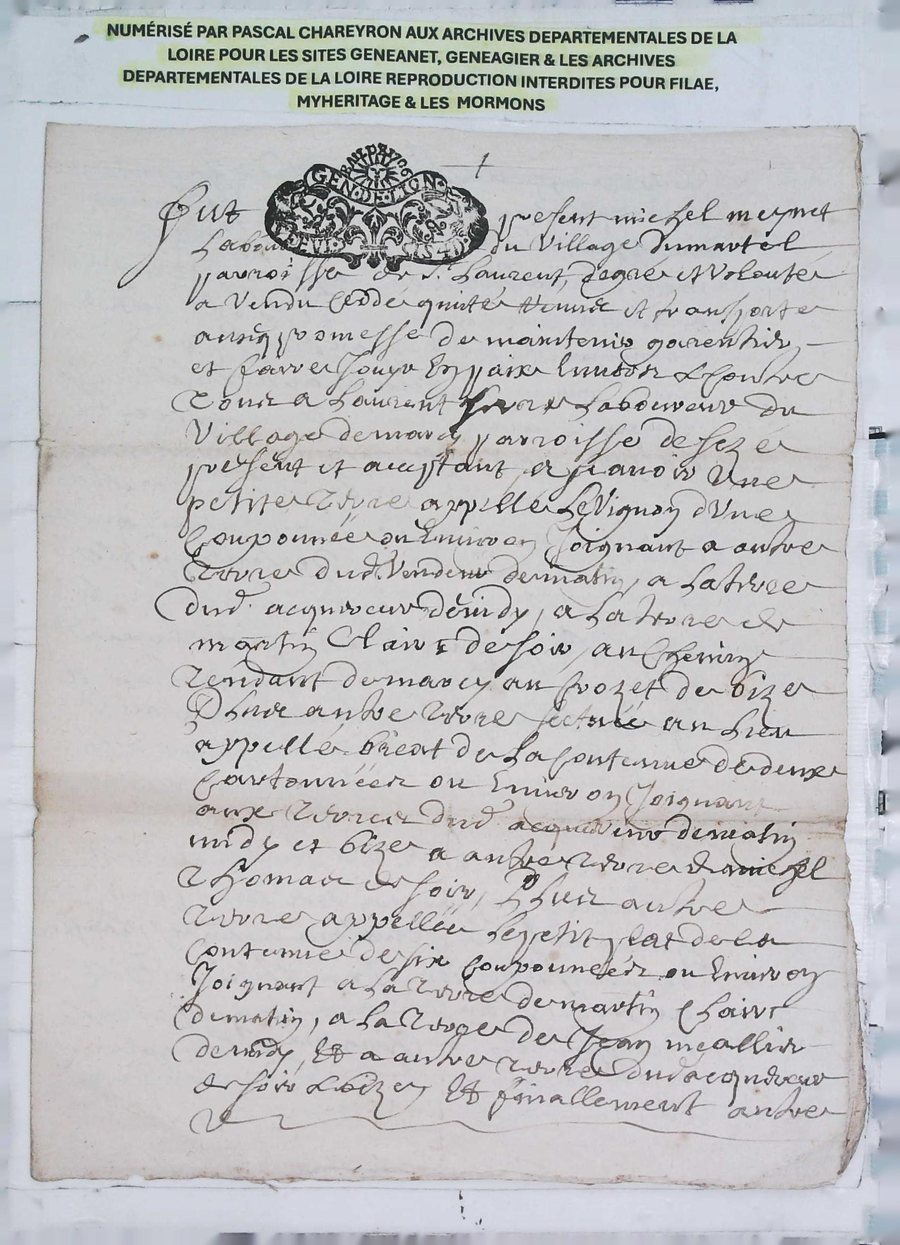 NUMÉRISÉ PAR PASCAL CHAREYRON AUX ARCHIVES DEPARTEMENTALES DE LA
LOIRE POUR LES SITES GENEANET, GENEAGIER & LES ARCHIVES
DEPARTEMENTALES DE LA LOIRE REPRODUCTION INTERDITES POUR FILAE,
MYHERITAGE & LES MORMONS
GEN·DE·LION
fut present michel meynet
du Village du martel
parroisse de St Laurent, de gré et volonté
a Vendu Ceddé quitté et transporte
avecq promesse de maintenir garentir
et faire Jouyr En paix Envers & Contre
Tous a Laurent Laboureur du
Village de marcy parroisse de
present et acceptant, a sçavoir Une
petite Terre appellé Le Vignon d'Une
Couponnée ou Environ Joignant a autre
terre dud. Vendeur de matin, a La terre
dud. acquereur de midy, a La terre de
martin Claire de soir, au Chemin
Tendant de marcy au Crozet de bize
Plus autre terre scituée au Lieu
appellé de La Contenue de deux
Cartonnées ou Environ Joignant
aux Terres dud. acquereur de matin
midy et bize a autre Terre de michel
Thomas de soir, Plus autre
Terre appellée Le petit de La
Contenue de six Couponnées ou Environ
Joignant a La Terre de martin Claire
de matin, a La Terre de Jean meallier
de midy, Et a autre Terre dud acquereur
de soir & bize, Et finallement autre